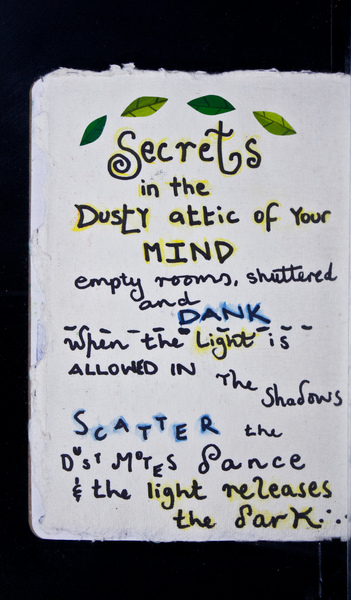 Secrets
in the
Dusty attic of Your
MIND
empty rooms, shuttered
and
DANK
When the Light is
ALLOWED IN
The Shadows
SCATTER the
DUST MOTES Dance
& the light releases
the dark...